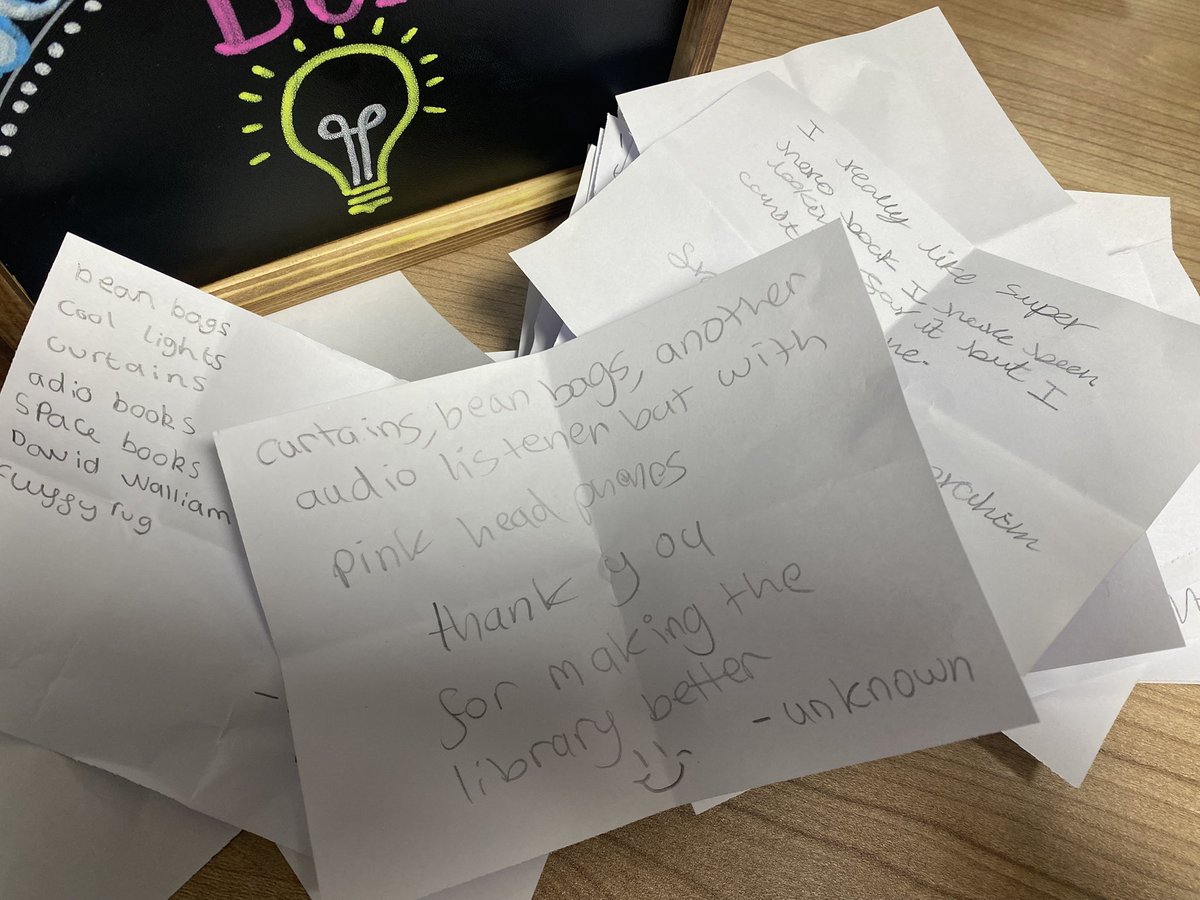 bean bags
cool lights
curtains
adio books
space books
David Walliam
fuyyy rug
curtains, bean bags, another
audio listener but with
pink head phones
thank you
for making the
library better
- unknown
I really like super
hero book I have been
it but I